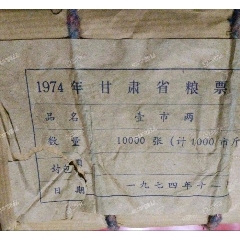 1974年甘肃省粮票
品名 壹市两
数量 10000 张(计1000市斤
封包
日期 一九七四年十一